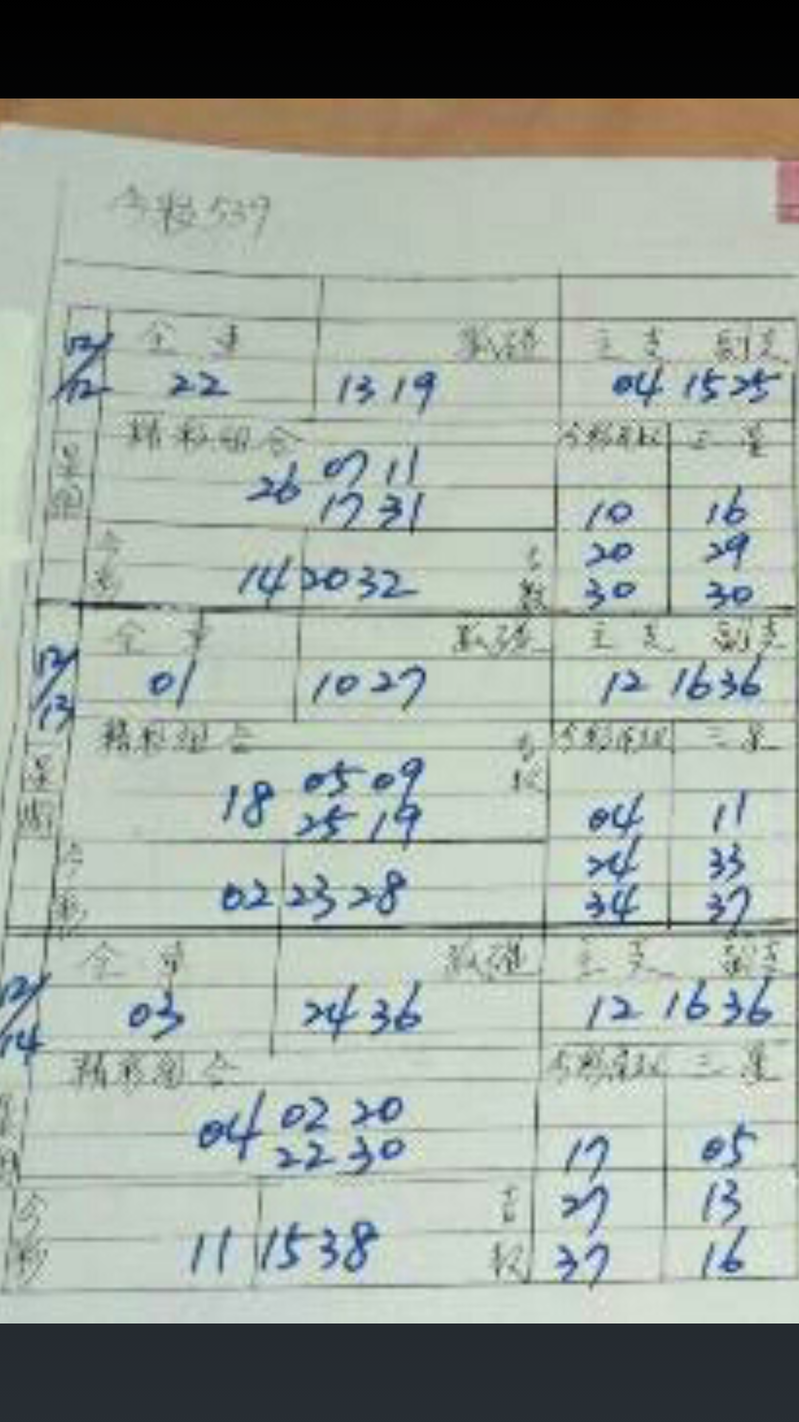 今彩539
12/12 全車 22 13 19 主支 副支 04 15 25
精彩組合 今彩 三星
26 07 11
17 31 10 16
20 29
今彩 14 20 32 30 30
12/13 全車 01 10 27 主支 副支 12 16 36
精彩組合 今彩 三星
18 05 09
25 19 04 11
24 33
今彩 02 23 28 34 37
12/14 全車 03 24 36 主支 副支 12 16 36
精彩組合 今彩 三星
04 02 20
22 30 17 05
27 13
今彩 11 15 38 37 16